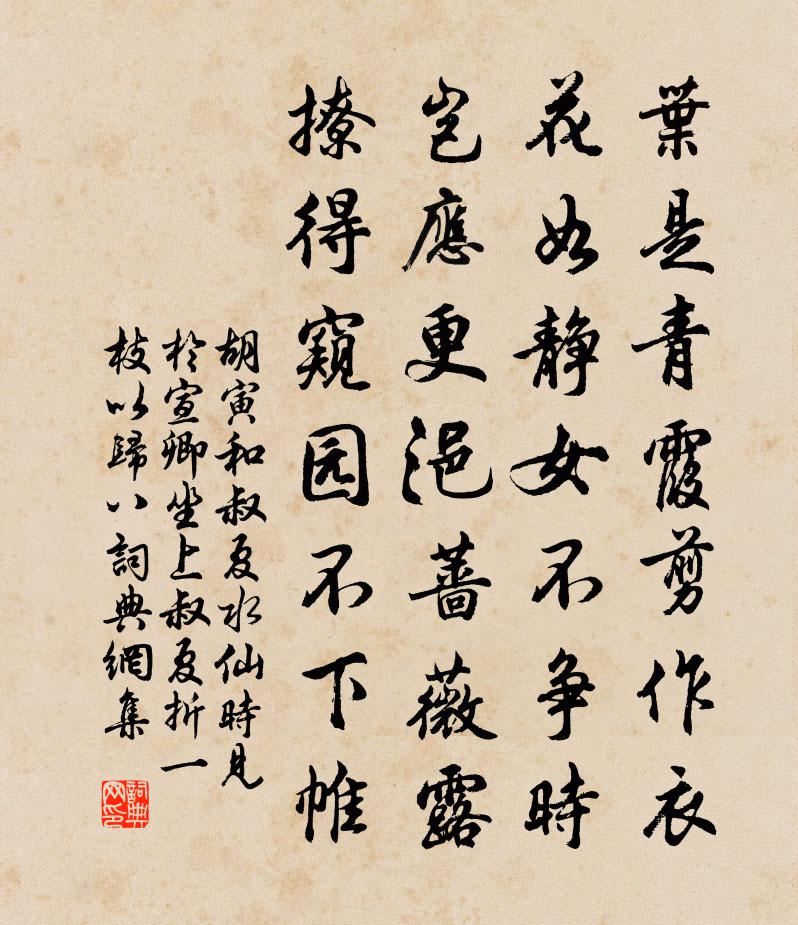 葉是青霞剪作衣
花如静女不争時
岂應更浥蔷薇露
撩得窺园不下帷
胡寅和叔夏水仙時見
於宣卿坐上叔夏折一
枝以歸八詞典網集
詞典网印